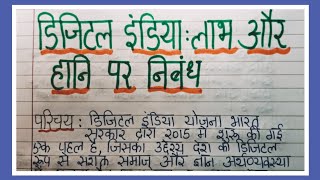 डिजिटल इंडिया:लाभ और
हानि पर निबंध
परिचय: डिजिटल इंडिया योजना भारत
सरकार द्वारा 2015 में शुरू की गई
एक पहल है, जिसका उद्देश्य देश को डिजिटल
रूप से सशक्त समाज और ज्ञान अर्थव्यवस्था